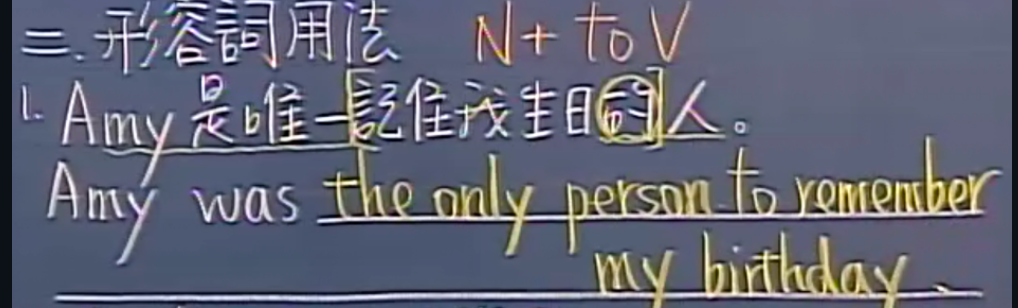 二.形容詞用法 N+ to V
1. Amy 是唯一[記住我生日的]人。
Amy was the only person to remember
my birthday.